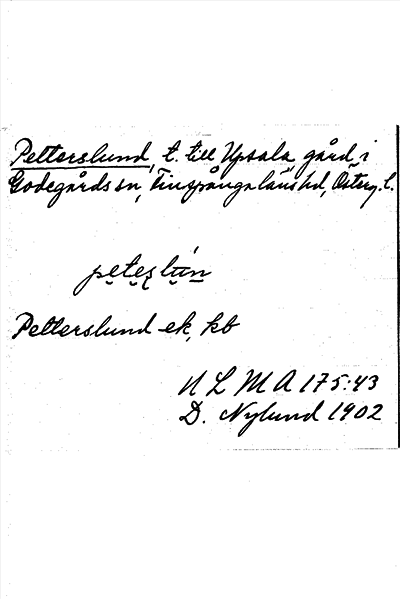 Petterslund, t. till Upsala, gård i
Godegårds sn, Finspånga läns hd, Österg. l.
peteslún
Petterslund ek, kb
N L M A 175:43
D. Nylund 1902